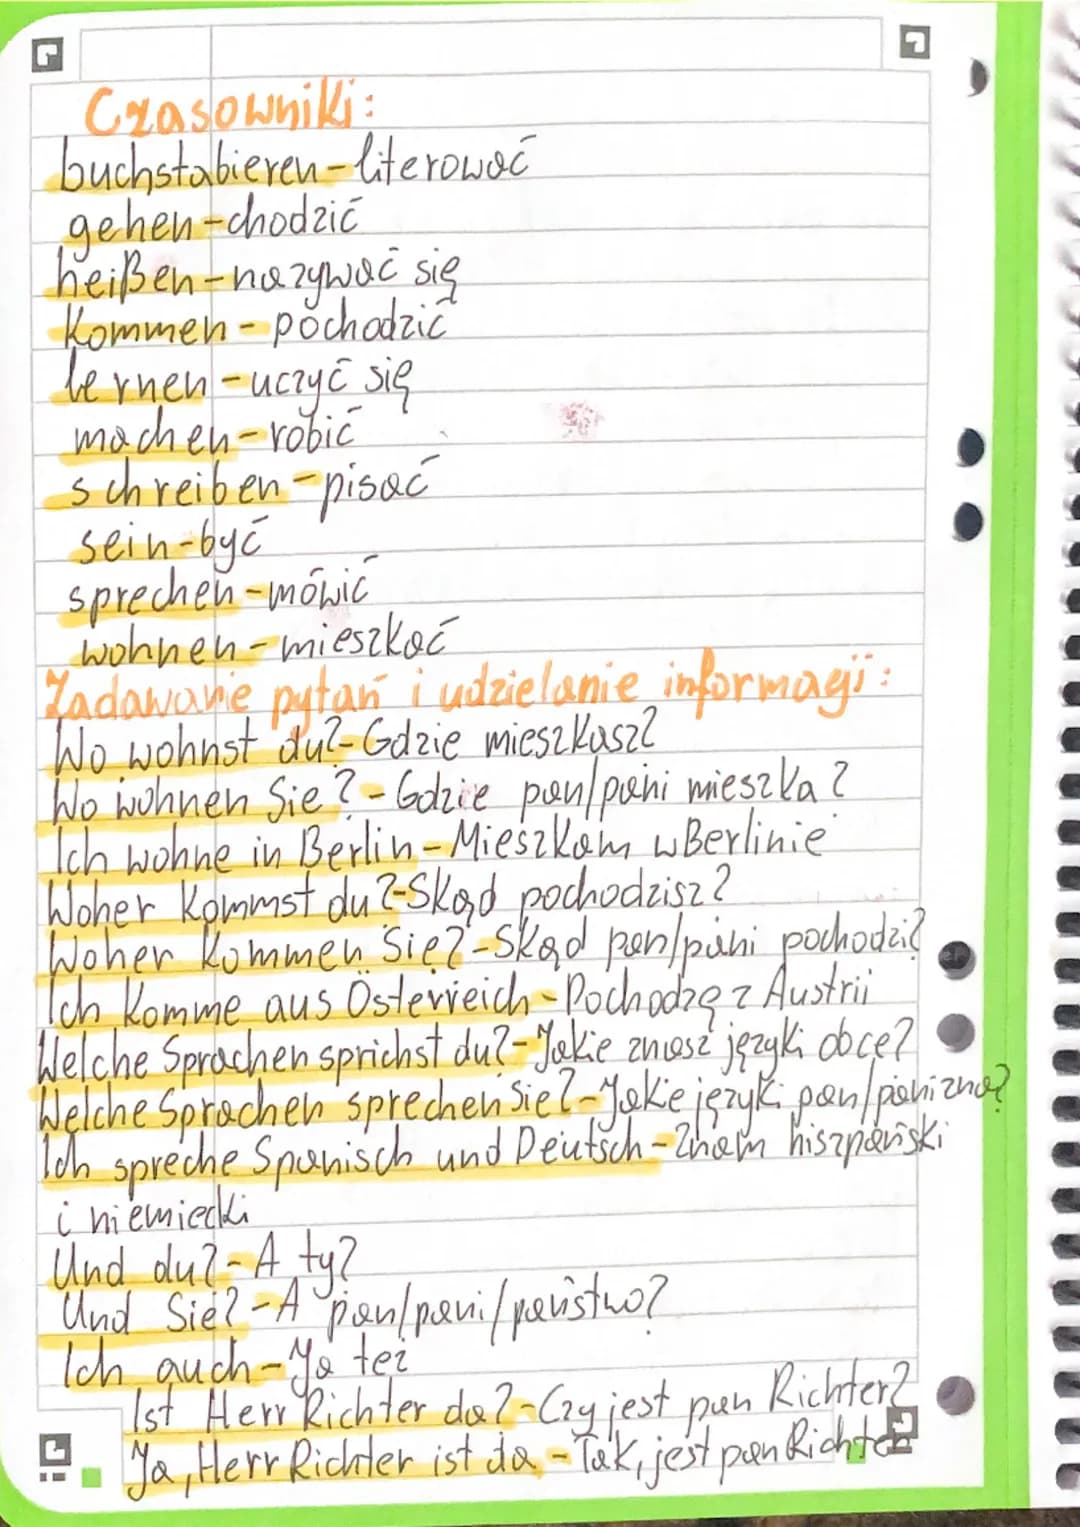 Czasowniki:
buchstabieren - literować
gehen - chodzić
heißen - nazywać się
kommen - pochodzić
lernen - uczyć się
machen - robić
schreiben - pisać
sein - być
sprechen - mówić
wohnen - mieszkać
Zadawanie pytań i udzielanie informacji:
Wo wohnst du? - Gdzie mieszkasz?
Wo wohnen Sie? - Gdzie pan/pani mieszka?
Ich wohne in Berlin - Mieszkam w Berlinie
Woher kommst du? - Skąd pochodzisz?
Woher kommen Sie? - Skąd pan/pani pochodzi?
Ich komme aus Österreich - Pochodzę z Austrii
Welche Sprachen sprichst du? - Jakie znasz języki obce?
Welche Sprachen sprechen Sie? - Jakie języki pan/pani zna?
Ich spreche Spanisch und Deutsch - Znam hiszpański
i niemiecki
Und du? - A ty?
Und Sie? - A pan/pani/państwo?
Ich auch - Ja też
Ist Herr Richter da? - Czy jest pan Richter?
Ja, Herr Richter ist da - Tak, jest pan Richter